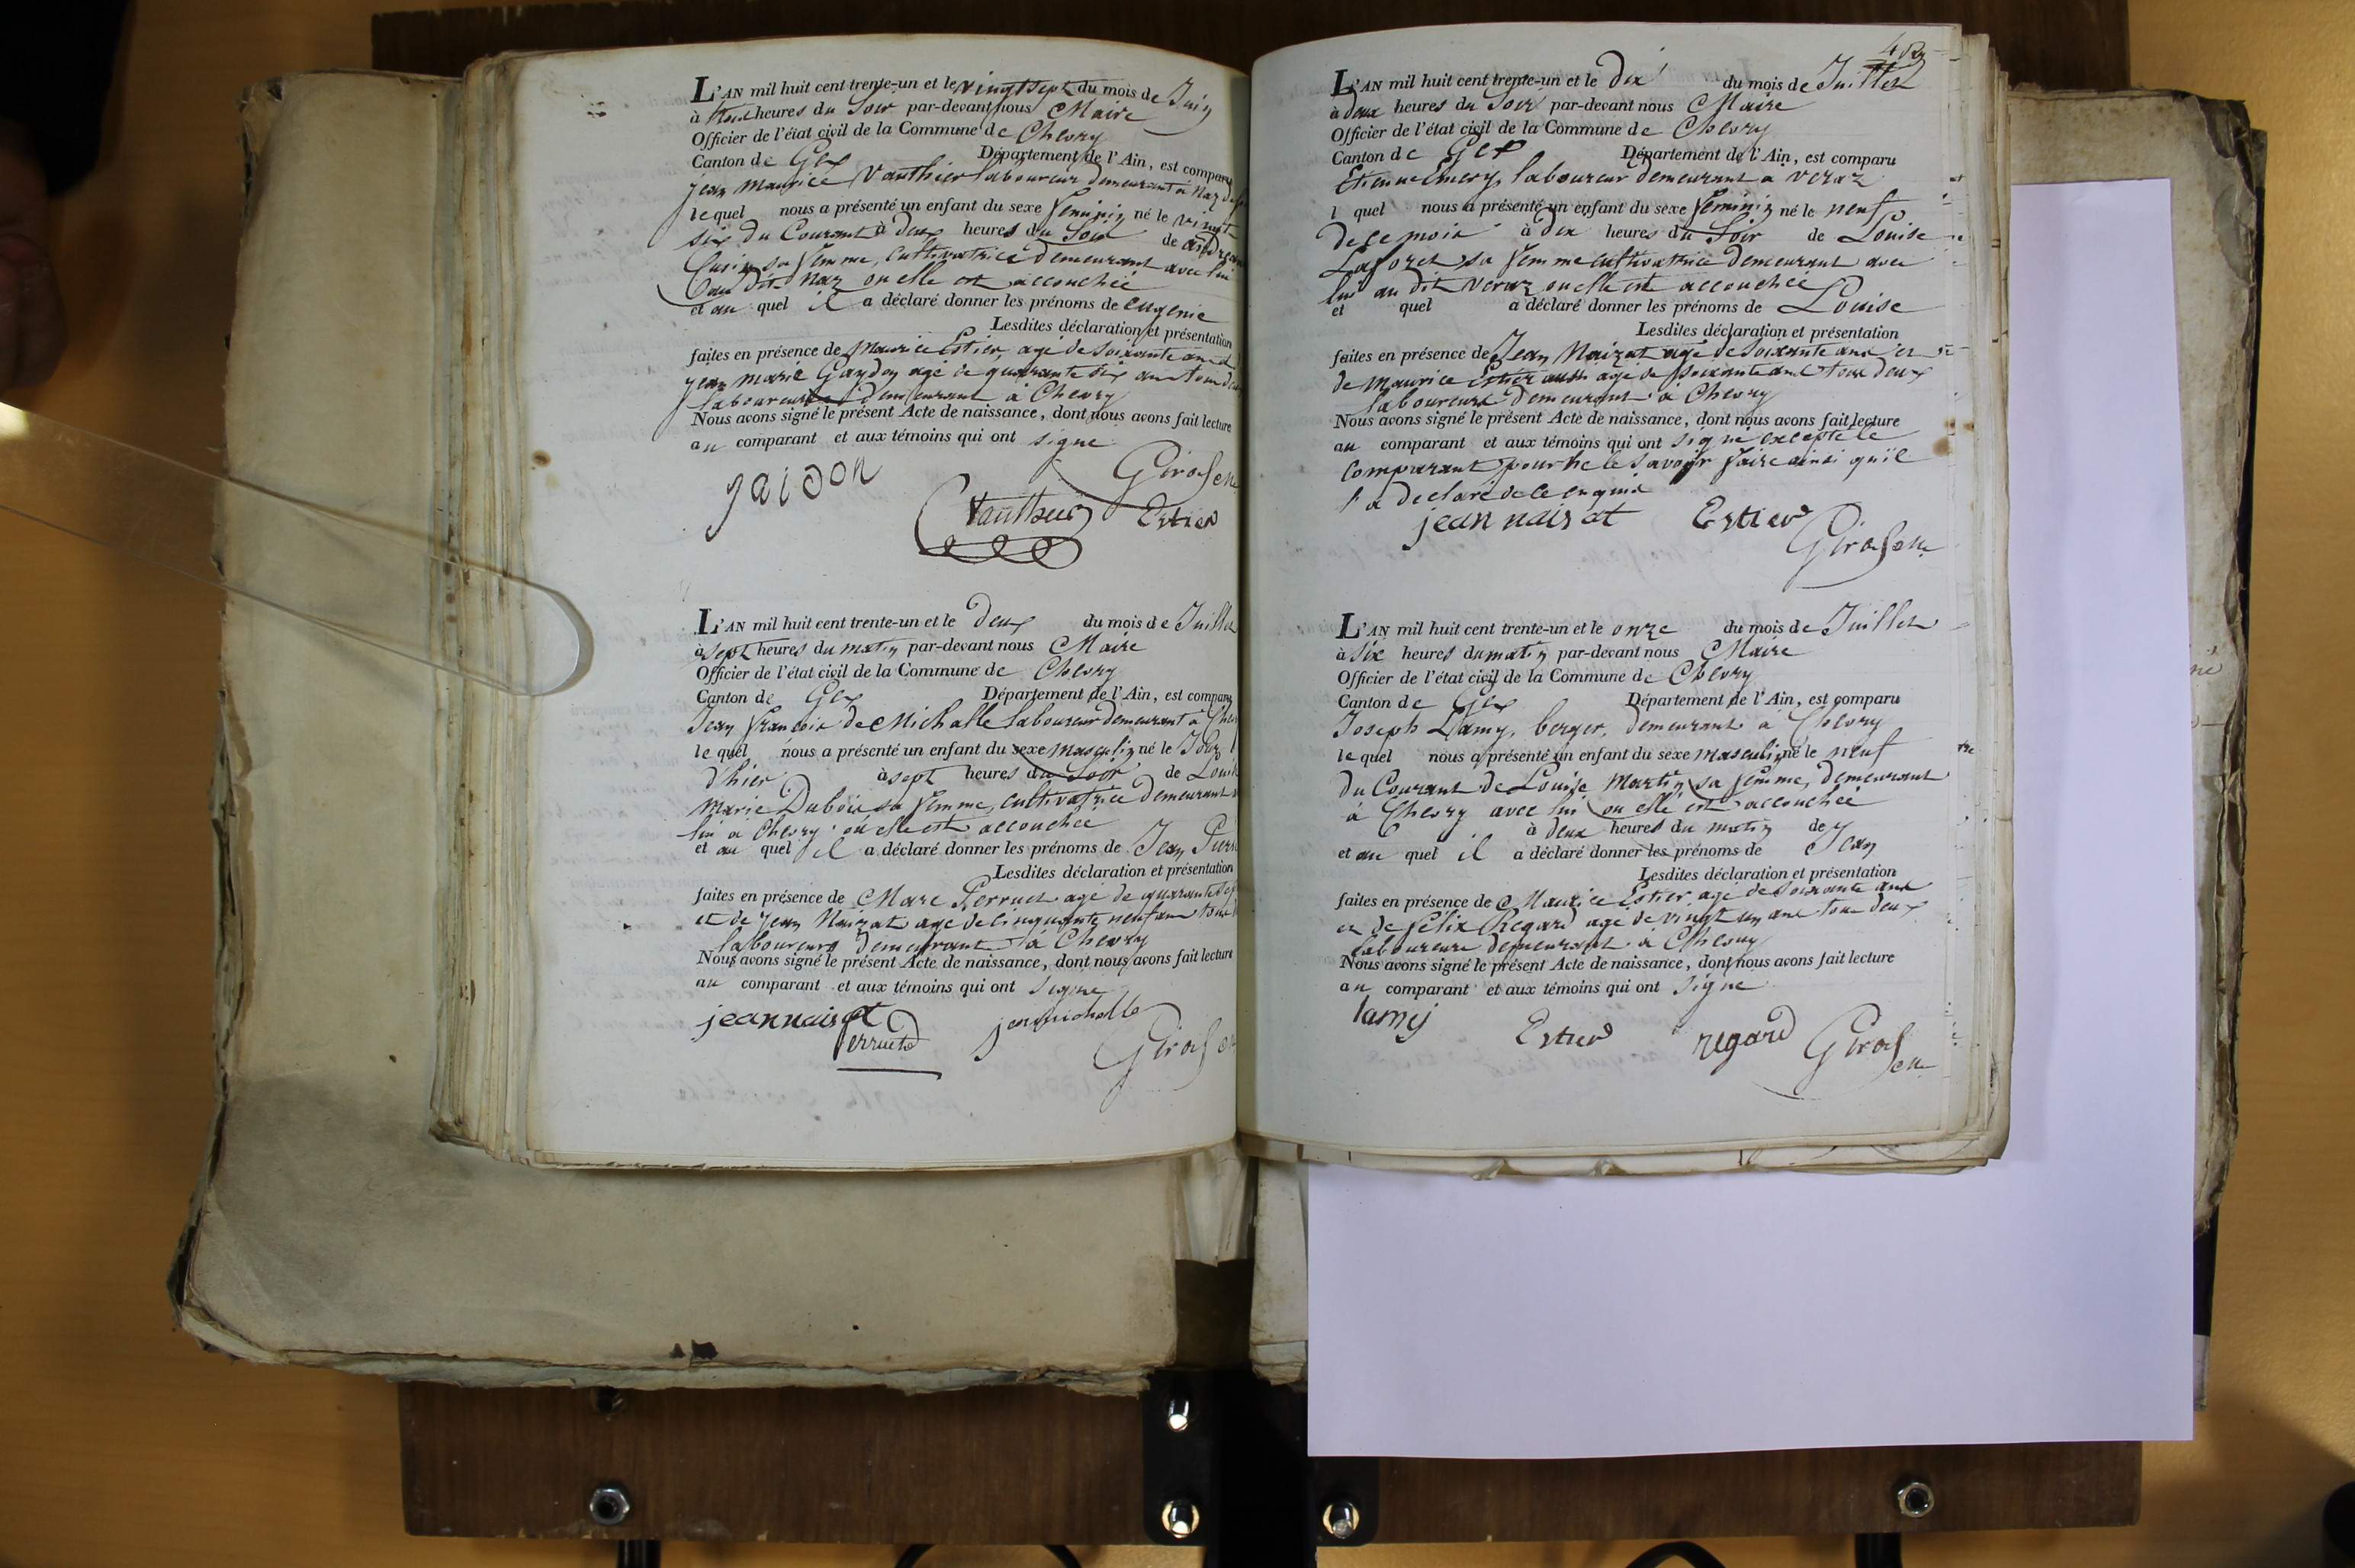 L'AN mil huit cent trente-un et le vingt sept du mois de Juin
à huit heures du Soir par-devant nous Maire
Officier de l'état civil de la Commune de Chevry
Canton de Gex Département de l'Ain, est comparu
jean maurice Vauthier laboureur demeurant à Naz
le quel nous a présenté un enfant du sexe feminin né le vingt
six du Courant à deux heures du Soir de
sa femme, Cultivatrice demeurant avec lui
au dit Naz ou elle est accouchée
et au quel il a déclaré donner les prénoms de Eugenie
Lesdites déclaration et présentation
faites en présence de Maurice Estier, agé de soixante ans et
jean marie Gaydon agé de quarante six ans tous deux
laboureurs demeurant à Chevry
Nous avons signé le présent Acte de naissance, dont nous avons fait lecture
au comparant et aux témoins qui ont signé
Girod sen
jaidon
Vauthier Estier
L'AN mil huit cent trente-un et le deux du mois de Juillet
à sept heures du matin par-devant nous Maire
Officier de l'état civil de la Commune de Chevry
Canton de Gex Département de l'Ain, est comparu
Jean françois deMichalle laboureur demeurant à Chev
le quel nous a présenté un enfant du sexe masculin né le Jour
d'hier à sept heures du Soir de Louise
Marie Dubois sa femme, cultivatrice demeurant
lui à Chevry où elle est accouchée
et au quel il a déclaré donner les prénoms de Jean Pierre
Lesdites déclaration et présentation
faites en présence de Marc Perruet agé de quarante
et de jean Naizat agé de cinquante neuf ans tous
laboureurs demeurant à Chevry
Nous avons signé le présent Acte de naissance, dont nous avons fait lecture
au comparant et aux témoins qui ont signé
jean naisat jean michalle
Perruet Girod sen
L'AN mil huit cent trente-un et le dix du mois de Juillet
à deux heures du Soir par-devant nous Maire
Officier de l'état civil de la Commune de Chevry
Canton de Gex Département de l'Ain, est comparu
Etienne Emery, laboureur demeurant à Veraz
l quel nous a présenté un enfant du sexe feminin né le neuf
de ce mois à dix heures du Soir de Louise
Laforet sa femme cultivatrice demeurant avec
lui au dit Veraz ou elle est accouchée
et quel a déclaré donner les prénoms de Louise
Lesdites déclaration et présentation
faites en présence de Jean Naizat agé de soixante ans et
de Maurice Estier aussi agé de soixante ans tous deux
laboureurs demeurant à Chevry
Nous avons signé le présent Acte de naissance, dont nous avons fait lecture
au comparant et aux témoins qui ont signé excepté le
comparant pour ne le savoir faire ainsi qu'il
l'a declaré de ce enquis
jean naisat Estier
Girod sen
L'AN mil huit cent trente-un et le onze du mois de Juillet
à six heures du matin par-devant nous Maire
Officier de l'état civil de la Commune de Chevry
Canton de Gex Département de l'Ain, est comparu
Joseph Lamy, berger, demeurant à Chevry
le quel nous a présenté un enfant du sexe masculin né le neuf
du Courant de Louise Martin sa femme, demeurant
à Chevry avec lui ou elle est accouchée
à deux heures du matin de
et au quel il a déclaré donner les prénoms de Jean
Lesdites déclaration et présentation
faites en présence de Maurice Estier agé de soixante ans
et de felix Regard agé de vingt un ans tous deux
laboureurs demeurant à Chevry
Nous avons signé le présent Acte de naissance, dont nous avons fait lecture
au comparant et aux témoins qui ont signé
lamy Estier regard Girod
sen